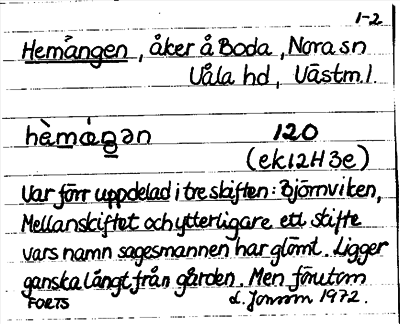 1-2
Hemängen, åker å Boda, Nora sn
Våla hd, Västm.l.
hὲmάŋən 120
(ek12H3e)
Var förr uppdelad i tre skiften: Björnviken,
Mellanskiftet och ytterligare ett skifte
vars namn sagesmannen har glömt. Ligger
ganska långt från gården. Men förutom
FORTS 1972.